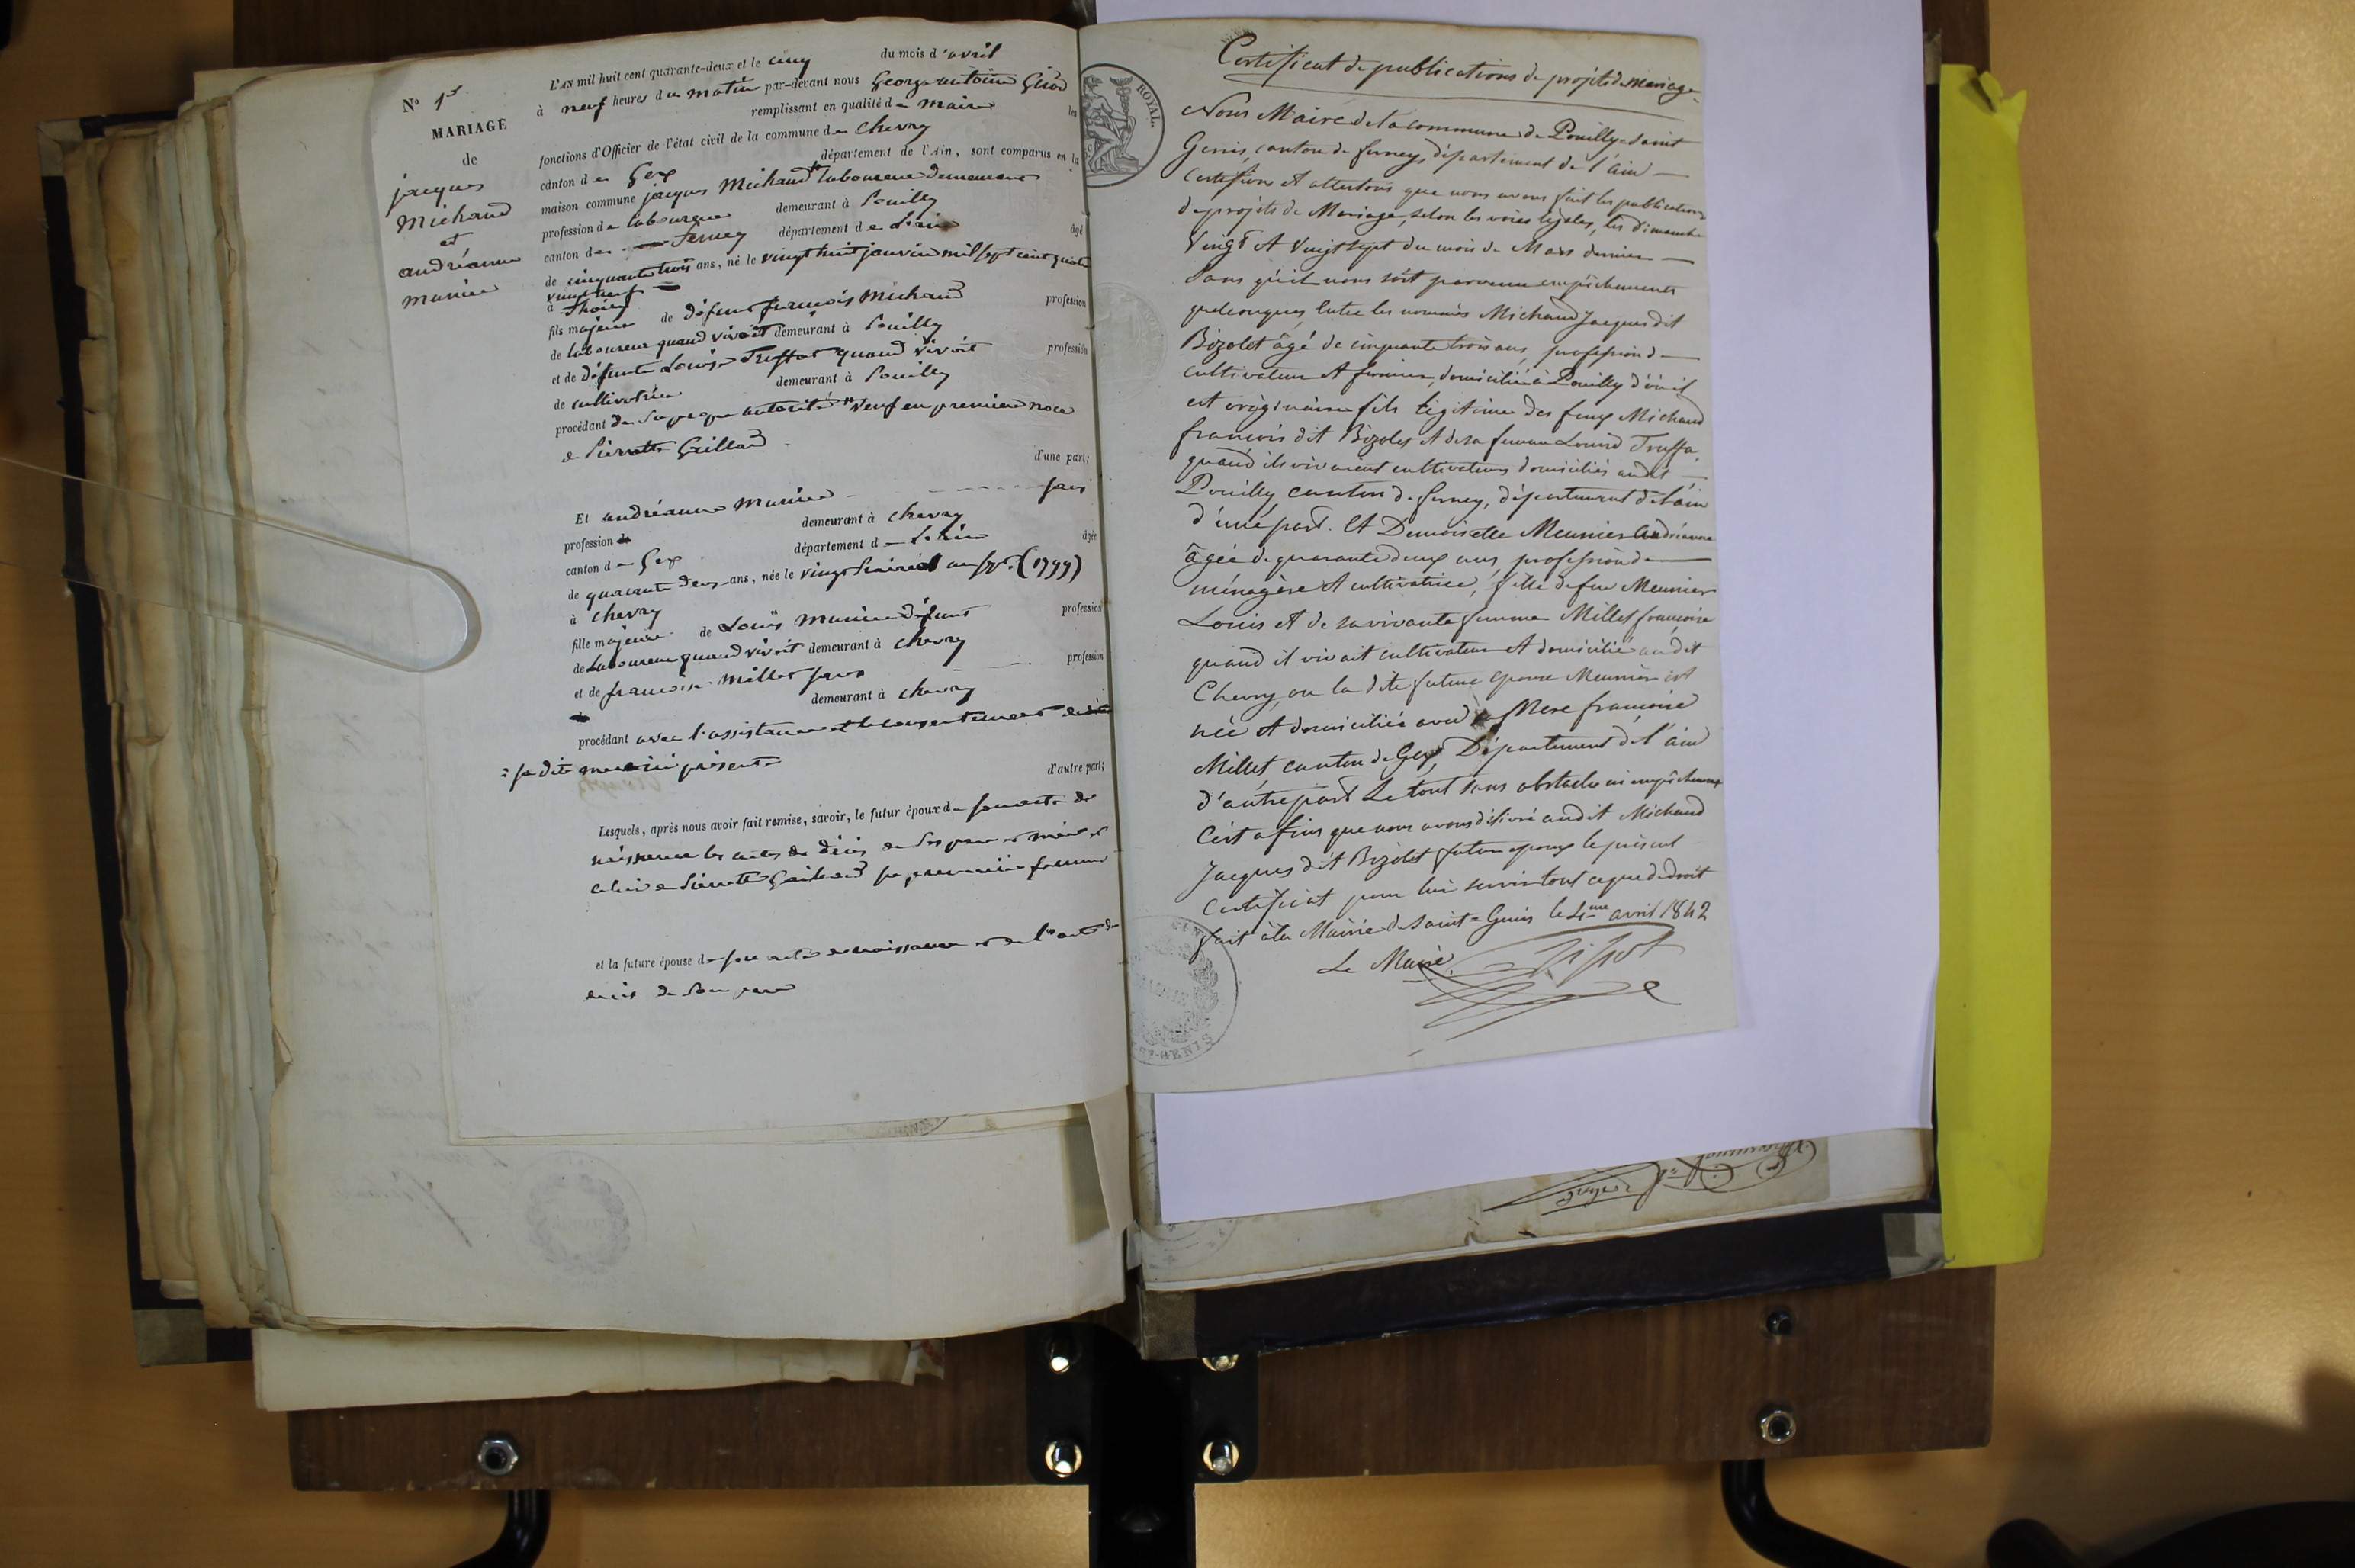 N° 1er
MARIAGE
de
jacques
Michaud
et
andréanne
munier
L'AN mil huit cent quarante-deux et le cinq du mois d'avril
à neuf heures du matin par-devant nous George antoine Girod
remplissant en qualité de maire les
fonctions d'Officier de l'état civil de la commune de Chevry
canton de Gex département de l'Ain, sont comparus en la
maison commune jacques Michaud laboureur demeurant
profession de laboureur demeurant à Pouilly
canton de Ferney département de L'ain âgé
de cinquante trois ans, né le vingt huit janvier mil sept cent quatre
vingt neuf
à Thoiry
fils majeur de défunt françois Michaud profession
de laboureur quand vivoit demeurant à Pouilly
et de défunte Louise Truffat quand vivoit profession
de cultivatrice demeurant à Pouilly
procédant de sa propre autorité veuf en premiere noce
de Pierrette Gaillard
d'une part;
Et andréanne munier sans
profession de demeurant à chevry
canton de Gex département de L'ain âgée
de quarante deux ans, née le vingt an (1799)
à chevry
fille majeure de Louis munier défunt profession
de Laboureur quand vivoit demeurant à chevry
et de francoise millet sans profession
demeurant à chevry
procédant avec l'assistance et le consentement de
sa dite mere ici présente
d'autre part;
Lesquels, après nous avoir fait remise, savoir, le futur époux de son acte de
naissance les actes de décès de ses pere et mere et
celui de Pierrette Gaillard sa premiere femme
et la future épouse de son acte de naissance et de l'acte de
décès de son pere
Certificat de publications de projets de mariage
ROYAL.
Nous Maire de la commune de Pouilly-Saint
Genis, canton de ferney, département de l'ain
Certifions et attestons que nous avons fait les publications
de projets de Mariage, selon les voies légales, les dimanche
Vingt et Vingt sept du mois de Mars dernier
Sans qu'il nous soit parvenu empêchements
quelconques, Entre les nommés Michaud Jacques dit
Bizolet âgé de cinquante trois ans, profession de
cultivateur et fermier, domicilié à Pouilly d'où il
est originaire fils légitime des feux Michaud
françois dit Bizolet et de sa femme Louise Truffa,
quand ils vivaient cultivateurs domiciliés audit
Pouilly canton de ferney, département de l'ain
d'une part. Et Demoiselle Meunier andréanne
âgée de quarante deux ans, profession de
ménagère et cultivatrice, fille de feu Meunier
Louis et de sa vivante femme Millet françoise
quand il vivait cultivateur et domicilié audit
Chevry, ou la dite future epouse Meunier est
née et domiciliée avec sa Mere françoise
Millet canton de Gex, Département de l'ain
d'autre part Le tout sans obstacles ni empêchements
C'est a fins que nous avons délivré audit Michaud
Jacques dit Bizolet futur epoux le présent
Certificat pour lui servir tout ce que de droit
fait à la Mairie de Saint-Genis le 4me avril 1842
Le Maire
ST-GENIS